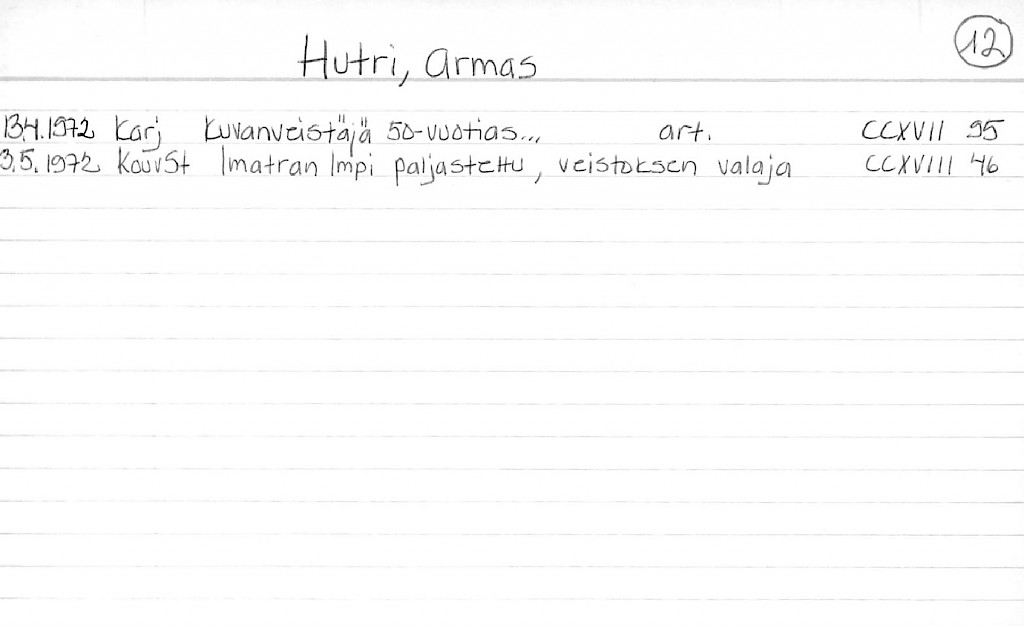 12
Hutri, Armas
13.4.1972 Karj Kuvanveistäjä 50-vuotias... art. CCXVII 95
3.5.1972 KouvSt Imatran Impi paljastettu, veistoksen valaja CCXVIII 46